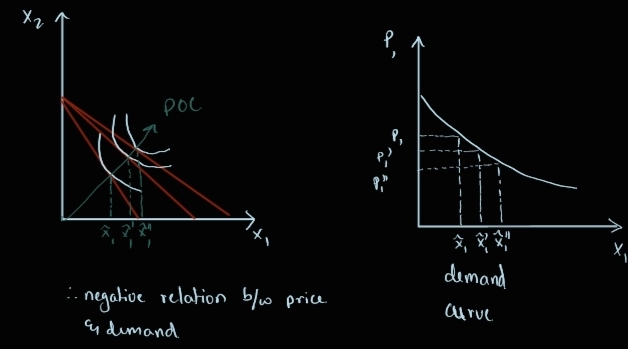 x₂
POC
x̂₁ x̂₁' x̂₁''
x₁
∴ negative relation b/w price
& demand
P₁
P₁
P₁'
P₁''
x̂₁ x̂₁' x̂₁''
x₁
demand
curve